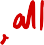 , all